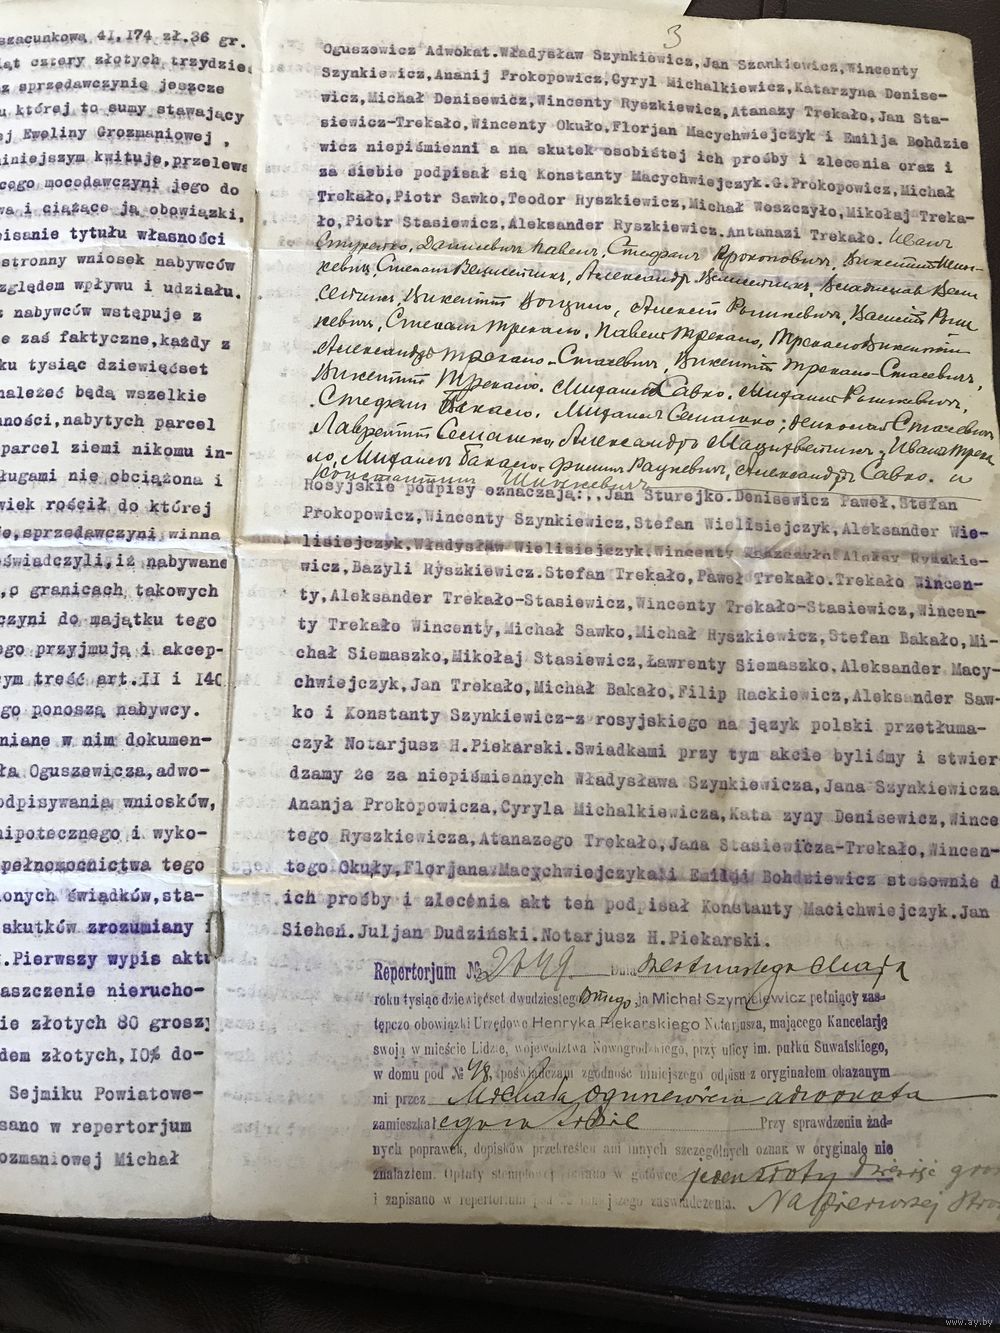 szacunkową 41.174 zł.36 gr.
cztery złotych trzydzie
sprzedawczynię jeszcze
której to sumy stawający
Eweliny Grozmaniowej ,
niniejszym kwituje,przelewa
mocodawczyni jego do
i ciążące ją obowiązki,
tytułu własności
wniosek nabywców
względem wpływu i udziału.
nabywców wstępuje z
zaś faktyczne,każdy z
tysiąc dziewięćset
należeć będą wszelkie
nabytych parcel
parcel ziemi nikomu in-
nie obciążona i
rościł do której
sprzedawczyni winna
iż nabywane
o granicach takowych
do majątku tego
przyjmują i akcep-
treść art.II i 140
ponoszą nabywcy.
w nim dokumen-
Oguszewicza,adwo-
wniosków,
i wyko-
pełnomocnictwa tego
świądków,sta-
skutków zrozumiany i
.Pierwszy wypis aktu
nierucho-
złotych 80 groszy
złotych,10% do-
Sejmiku Powiatowe-
w repertorjum
Michał
3
Oguszewicz Adwokat.Władysław Szynkiewicz,Jan Szankiewicz,Wincenty
Szynkiewicz,Ananij Prokopowicz,Cyryl Michalkiewicz,Katarzyna Denise-
wicz,Michał Denisewicz,Wincenty Ryszkiewicz,Atanazy Trekało,Jan Sta-
siewicz-Trekało,Wincenty Okuło,Florjan Macychwiejczyk i Emilja Bohdzie
wicz niepiśmienni a na skutek osobistej ich prośby i zlecenia oraz i
za siebie podpisał się Konstanty Macychwiejczyk.G.Prokopowicz,Michał
Trekało,Piotr Sawko,Teodor Ryszkiewicz,Michał Woszczyło,Mikołaj Treka-
ło,Piotr Stasiewicz,Aleksander Ryszkiewicz.Antanazi Trekało. Иванъ
Стурейко, Данисевичъ Павелъ, Стефанъ Прокоповичъ, Викентий Шин-
кевичъ, Степанъ Александръ Владиславъ
Викентий Алексѣй Рышкевичъ, Василій Рыш
кевичъ, Степанъ Трекало, Павелъ Трекало, Трекало Викентий
Александръ Трекало-Стасевичъ, Викентий Трекало-Стасевичъ,
Викентий Трекало. Михаилъ Савко. Михаилъ Рышкевичъ,
Стефанъ Бакало. Михаилъ Семашко, Николай Стасевичъ
Лаврентий Семашко, Александръ Иванъ Трека
ло, Михаилъ Бакало. Филипъ Рацкевичъ, Александръ Савко. и
Константинъ Шинкевичъ
Rosyjskie podpisy oznaczają:,,Jan Sturejko.Denisewicz Paweł,Stefan
Prokopowicz,Wincenty Szynkiewicz,Stefan Wielisiejczyk,Aleksander Wie-
lisiejczyk,Władysław Wielisiejczyk,Wincenty Ryszkie-
wicz,Bazyli Ryszkiewicz.Stefan Trekało,Paweł Trekało.Trekało Wincen-
ty,Aleksander Trekało-Stasiewicz,Wincenty Trekało-Stasiewicz,Wincen-
ty Trekało Wincenty,Michał Sawko,Michał Ryszkiewicz,Stefan Bakało,Mi-
chał Siemaszko,Mikołaj Stasiewicz,Ławrenty Siemaszko.Aleksander Macy-
chwiejczyk,Jan Trekało,Michał Bakało,Filip Rackiewicz,Aleksander Saw-
ko i Konstanty Szynkiewicz-z rosyjskiego na język polski przetłuma-
czył Notarjusz H.Piekarski.Swiadkami przy tym akcie byliśmy i stwier
dzamy że za niepiśmiennych Władysława Szynkiewicza,Jana Szynkiewicza
Ananja Prokopowicza,Cyryla Michalkiewicza,Kata zyny Denisewicz,Wince
tego Ryszkiewicza,Atanazego Trekało,Jana Stasiewicza-Trekało,Wincen-
tego Okuły,Florjana Macychwiejczyka i Emilji Bohdziewicz stosownie d
ich prośby i zlecenia akt ten podpisał Konstanty Macichwiejczyk.Jan
Sieheń.Juljan Dudziński.Notarjusz H.Piekarski.
Repertorjum № 2649. Dnia szesnastego Maja
roku tysiąc dziewięćset dwudziestego ja Michał Szymalewicz pełniący zas-
tępczo obowiązki Urzędowe Henryka Piekarskiego Notarjusza, mającego Kancelarję
swoją w mieście Lidzie, województwa Nowogrodzkiego, przy ulicy im. pułku Suwalskiego,
w domu pod № 48, poświadczam zgodność niniejszego odpisu z oryginałem okazanym
mi przez Michała Oguszewicza adwokata
zamieszkałego w Lidzie Przy sprawdzeniu żad-
nych poprawek, dopisków przekreśleń ani innych szczególnych oznak w oryginale nie
znalazłem. Opłaty stemplowej w gotówce jeden złoty dziesięć gro
i zapisano w repertorjum pod zaświadczenia. Na pierwszej stro
www.ay.by